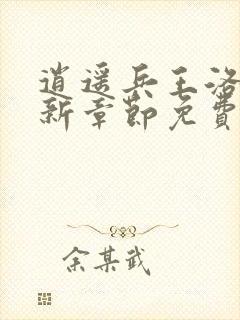 逍遥兵王洛
新章节免费
余某武